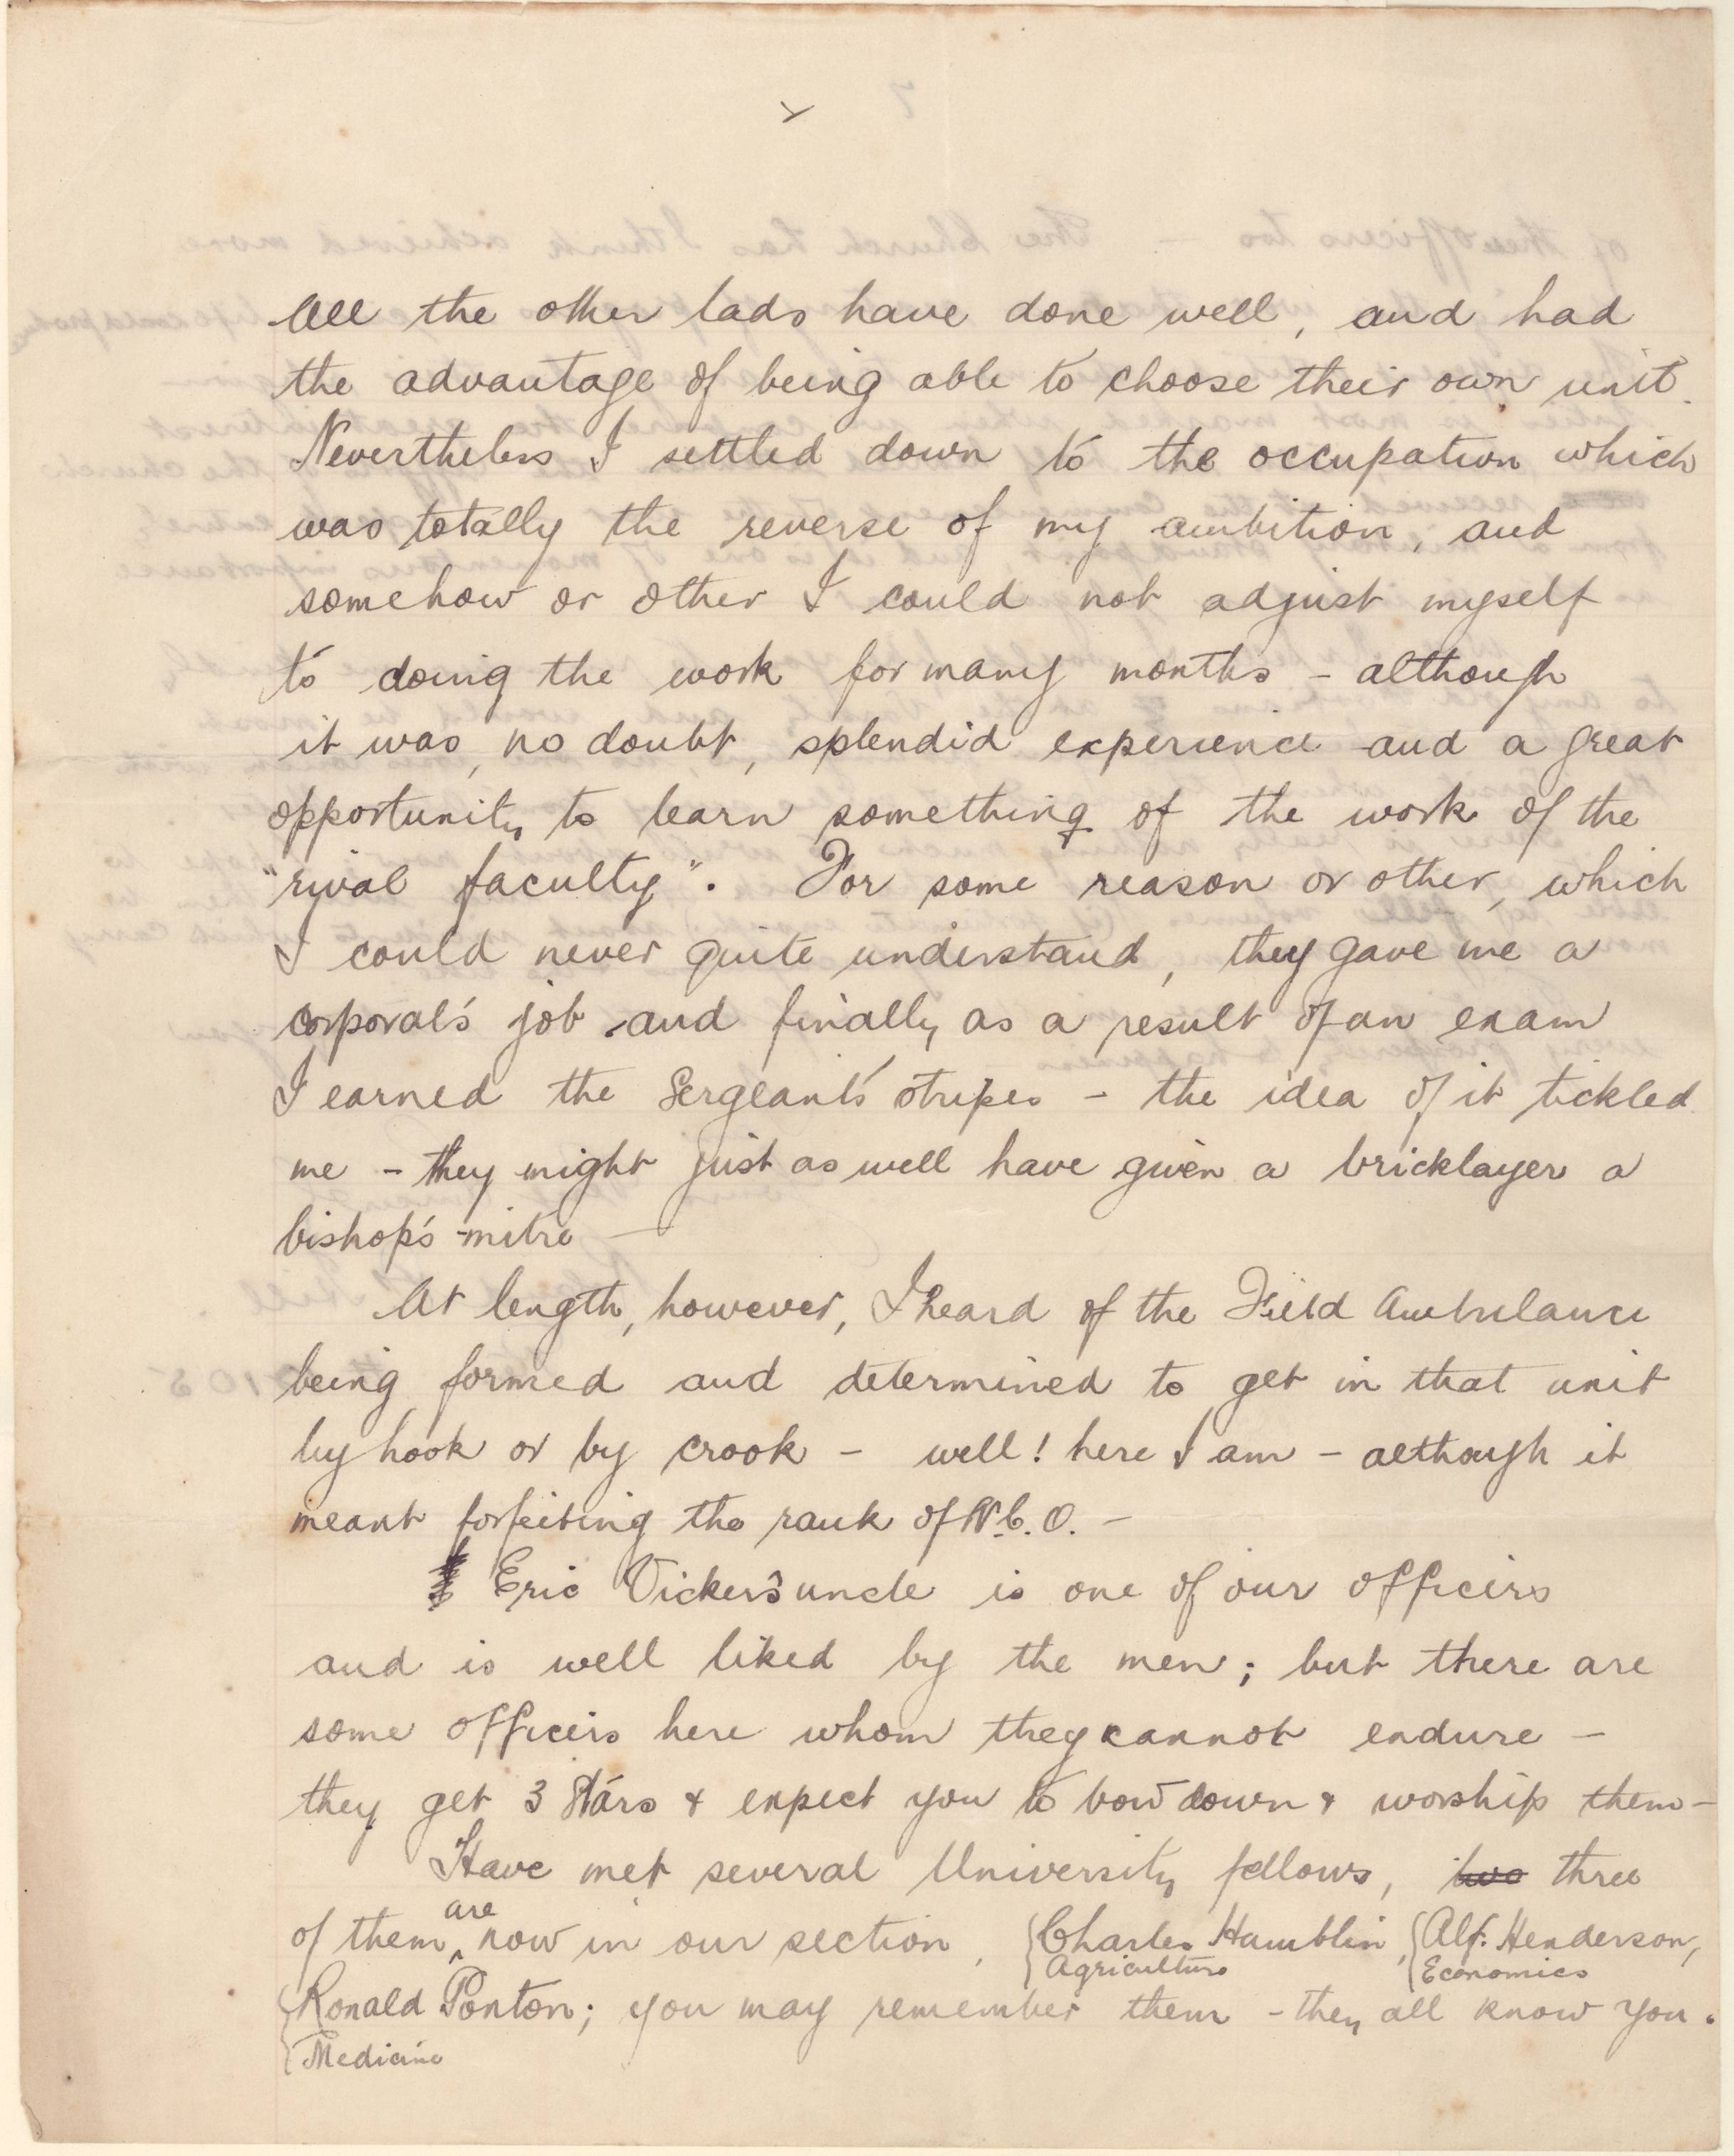 All the other lads have done well, and had
the advantage of being able to choose their own unit.
Nevertheless I settled down to the occupation which
was totally the reverse of my ambition, and
somehow or other I could not adjust myself
to doing the work for many months – although
it was, no doubt, splendid experience and a great
opportunity to learn something of the work of the
"rival faculty". For some reason or other, which
I could never quite understand, they gave me a
corporal's job and finally as a result of an exam
I earned the Sergeant's stripes – the idea of it tickled
me – they might just as well have given a bricklayer a
bishop's mitre —
At length, however, I heard of the Field Ambulance
being formed and determined to get in that unit
by hook or by crook – well! here I am – although it
meant forfeiting the rank of N.C.O. –
Eric Vicker's uncle is one of our officers
and is well liked by the men; but there are
some officers here whom they cannot endure –
they get 3 stars & expect you to bow down & worship them –
Have met several University fellows, two three
of them are now in our section, {Charles Hamblin, {Alf. Henderson,
Agriculture Economics
{Ronald Ponton; you may remember them – they all know you.
Medicine